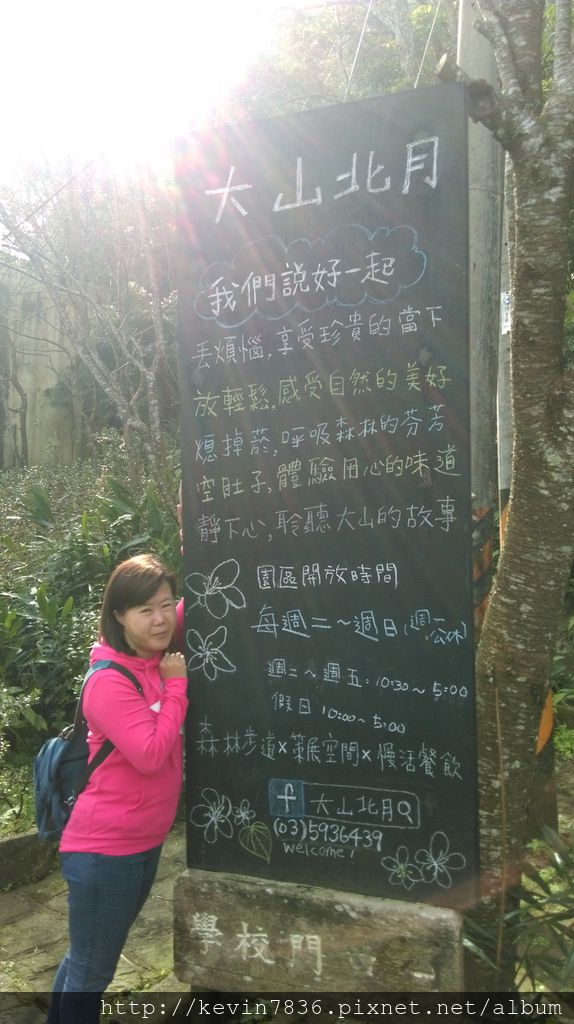 大山北月
我們說好一起
丟煩惱,享受珍貴的當下
放輕鬆,感受自然的美好
熄掉菸,呼吸森林的芬芳
空肚子,體驗用心的味道
靜下心,聆聽大山的故事
園區開放時間
每週二~週日(週一公休)
週二~週五:10:30~5:00
假日 10:00~5:00
森林步道×策展空間×慢活餐飲
f 大山北月
(03)5936439
welcome!
學校門口
http://kevin7836.pixnet.net/album